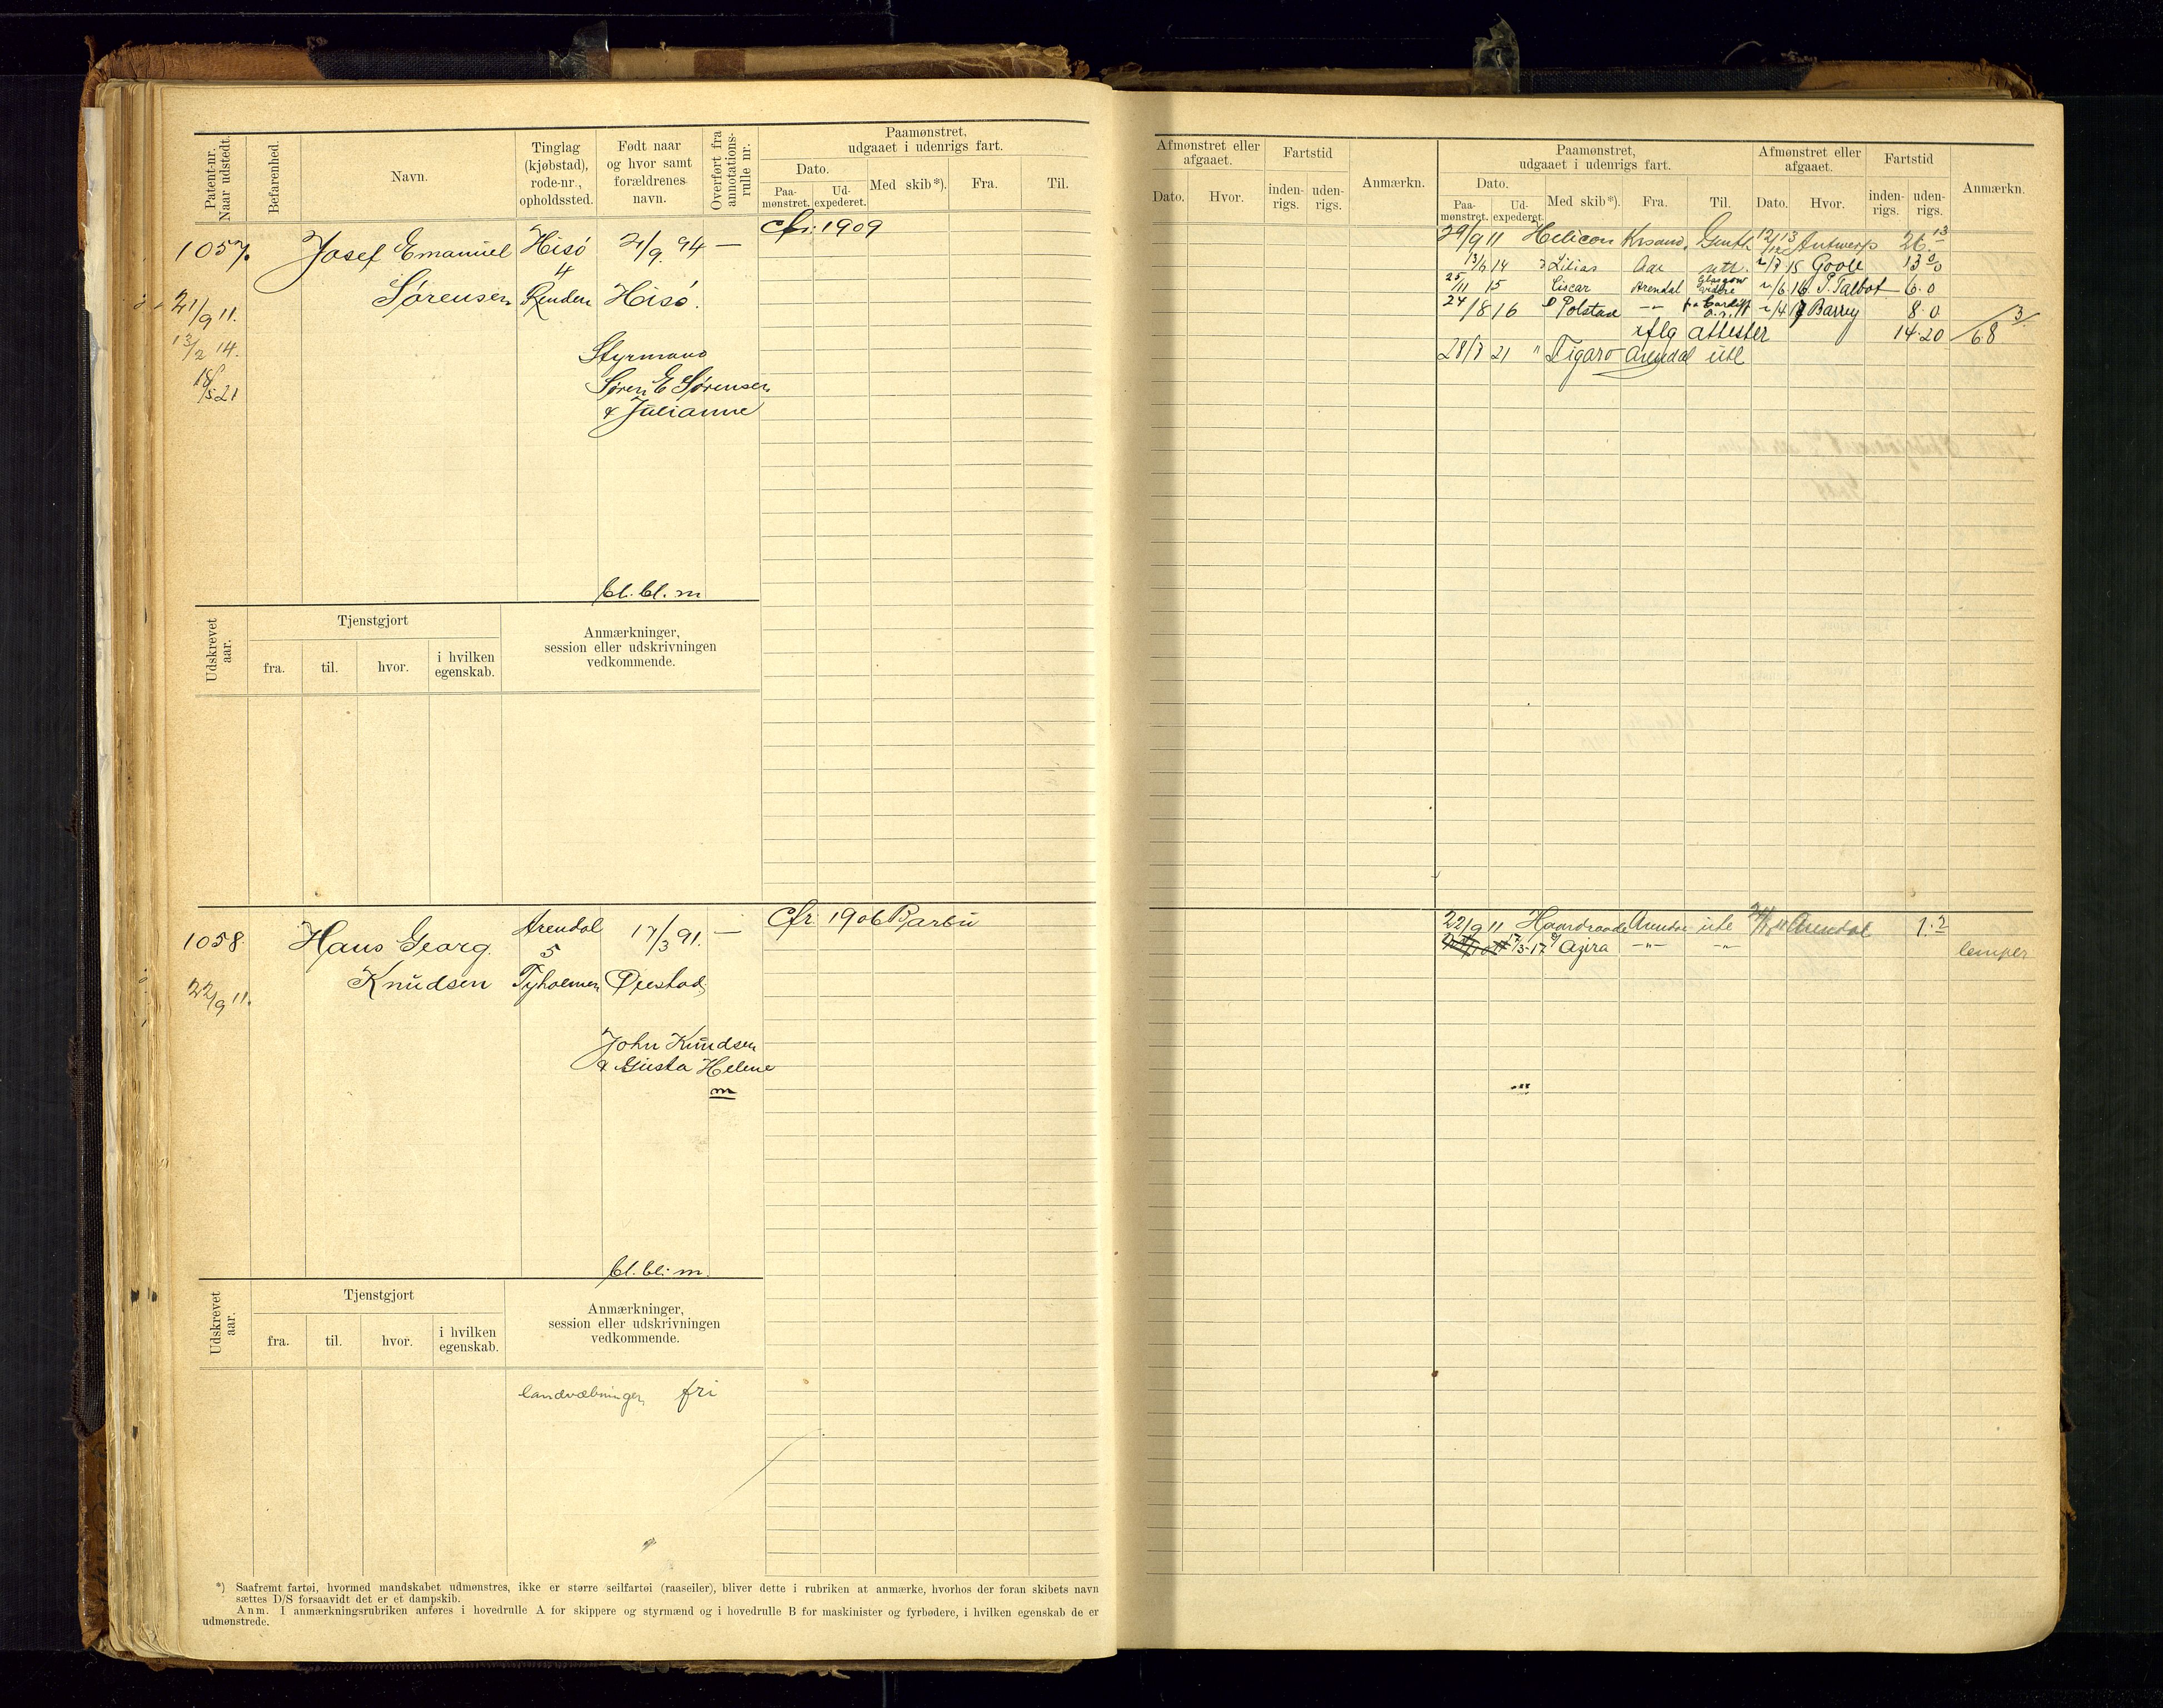 Patent-nr. Naar udstedt.
Befarenhed.
Navn.
Tinglag (kjøbstad), rode-nr., opholdssted.
Født naar og hvor samt forældrenes navn.
Overført fra annotations-rulle nr.
Paamønstret, udgaaet i udenrigs fart.
Dato.
Paa-mønstret.
Ud-expederet.
Med skib*).
Fra.
Til.
cfr. 1909
1057. Josef Emanuel Hisö 21/9. 94 —
4
Sørensen Renden Hisö.
21/9 11.
13/2 14.
Styrmand
Søren E Sørensen
& Julianne
bl. bl. m
Udskrevet aar.
Tjenstgjort
fra.
til.
hvor.
i hvilken egenskab.
Anmærkninger, session eller udskrivningen vedkommende.
1058. Hans Georg Arendal 17/3 91. — Cfr. 1906 Barbu
5
Knudsen Tyholmen Øiestad
22/9 11.
John Knudsen
& Gusta Helene
m
bl. bl. m.
Udskrevet aar.
Tjenstgjort
fra.
til.
hvor.
i hvilken egenskab.
Anmærkninger, session eller udskrivningen vedkommende.
fri
*) Saafremt fartøi, hvormed mandskabet udmønstres, ikke er større seilfartøi (raaseiler), bliver dette i rubriken at anmærke, hvorhos der foran skibets navn
sættes D/S forsaavidt det er et dampskib.
Anm. I anmærkningsrubriken anføres i hovedrulle A for skippere og styrmænd og i hovedrulle B for maskinister og fyrbødere, i hvilken egenskab de er
udmønstrede.
Afmønstret eller afgaaet.
Dato.
Hvor.
Fartstid
inden-rigs.
uden-rigs.
Anmærkn.
Paamønstret, udgaaet i udenrigs fart.
Dato.
Paa-mønstret.
Ud-expederet.
Med skib*).
Fra.
Til.
Afmønstret eller afgaaet.
Dato.
Hvor.
Fartstid
inden-rigs.
uden-rigs.
Anmærkn.
29/9 11 Helicon Krsand. Genth 12/12 13 Antwerp 26.13
13/6 14 Lilias 15 Goole 13
25/11 15 Ciscar Arendal Glasgow videre 16 P. Talbot 6.0
24/8 16 Polstad —"— Cardiff 17 Barry 8.0
iflg attester 14.20 68
28/7 21 " Figaro Arendal utl
22/9 11 Haardraade Arendal utl Arendal 1.2
17/5-17 Agra —"— —"—
lemper